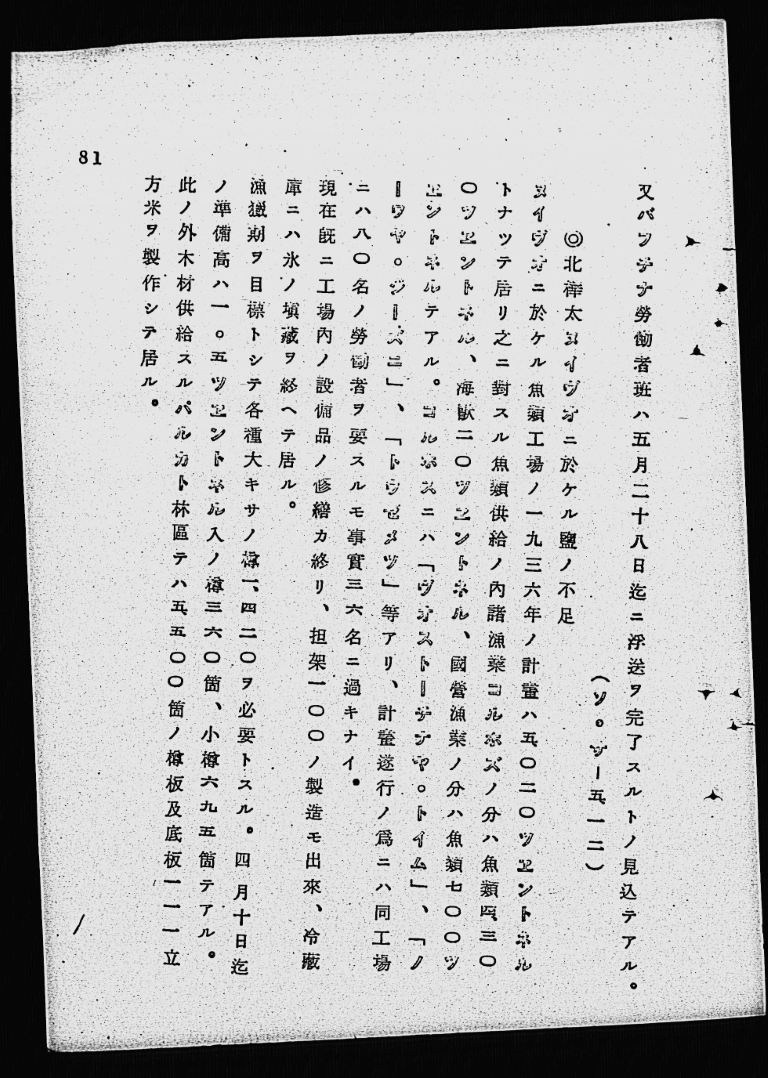 又バフチナ勞働者班ハ五月二十八日迄ニ浮送ヲ完了スルトノ見込テアル。
(ソ。サー五、一二)
◎北樺太ヌイヴオニ於ケル鹽ノ不足
ヌイヴオニ於ケル魚類工場ノ一九三六年ノ計畫ハ五、〇二〇ツエントネル
トナツテ居リ之ニ對スル魚類供給ノ內諸漁業コルホズノ分ハ魚類四、三〇
〇ツエントネル、海獸二〇ツエントネル、國營漁業ノ分ハ魚類七〇〇ツ
エントネルテアル。コルホスニハ「ヴオストーチナヤ。トイム」、「ノ
ーワヤ。ジーズニ」、「トウゼメツ」等アリ、計畫遂行ノ爲ニハ同工場
ニハ八〇名ノ勞働者ヲ要スルモ事實三六名ニ過キナイ。
現在既ニ工場內ノ設備品ノ修繕カ終リ、担架一〇〇ノ製造モ出來、冷藏
庫ニハ氷ノ塡藏ヲ終ヘテ居ル。
漁獵期ヲ目標トシテ各種大キサノ樽一、四二〇ヲ必要トスル。四月十日迄
ノ準備高ハ一。五ツエントネル入ノ樽三六〇箇、小樽六九五箇テアル。
此ノ外木材供給スルパルカト林區テハ五、五〇〇箇ノ樽板及底板一一一立
方米ヲ製作シテ居ル。
81